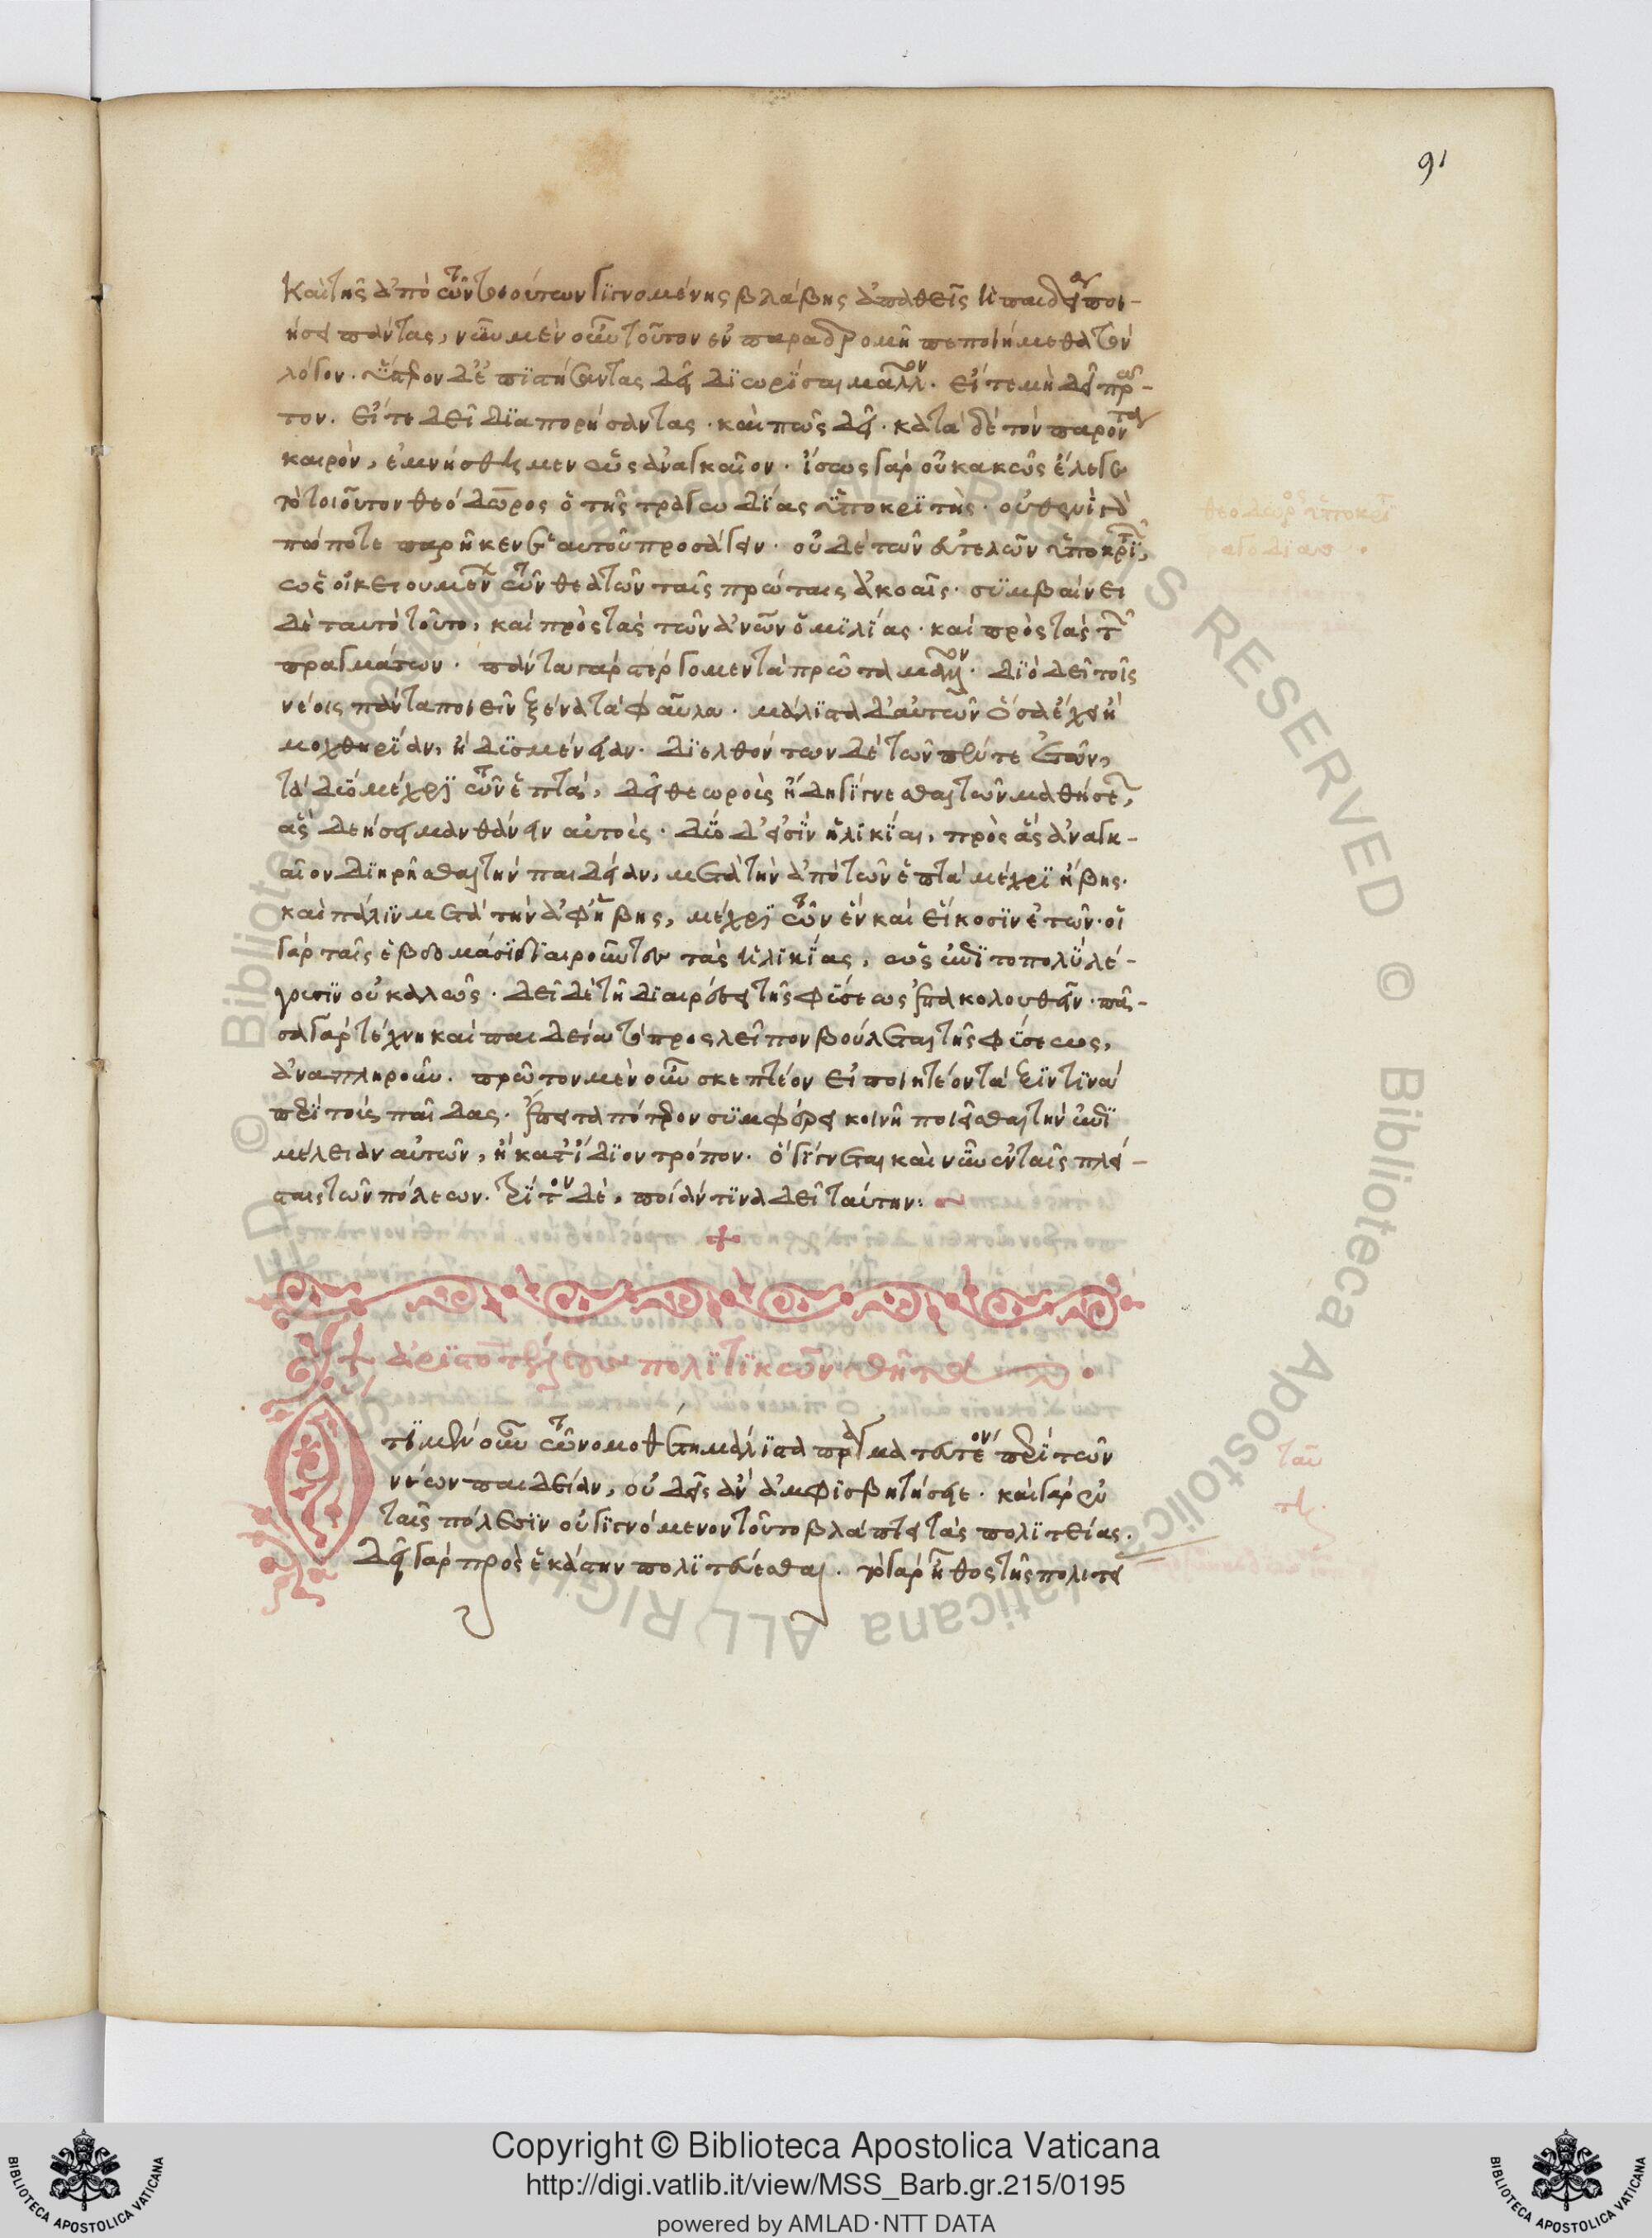 91
καὶ τῆς ἀπὸ τῶν τοιούτων γιγνομένης βλάβης ἀπαθεῖς ἡ παιδεία ποι-
ήσει πάντας, νῦν μὲν οὖν τοῦτον ἐν παραδρομῇ πεποιήμεθα τὸν
λόγον. ὕστερον δ' ἐπιστήσαντας δεῖ διωρίσαι μᾶλλον. εἴτε μὴ δεῖ πρῶ-
τον. εἴτε δεῖ διαπορήσαντας. καὶ πῶς δεῖ. κατὰ δὲ τὸν παρόντα
καιρὸν, ἐμνήσθημεν ὡς ἀναγκαῖον. ἴσως γὰρ οὐ κακῶς ἔλεγε
τὸ τοιοῦτον θεόδωρος ὁ τῆς τραγωδίας ὑποκριτὴς. οὐθενὶ γὰ
πώποτε παρῆκεν ἑαυτοῦ προσάγειν. οὐδὲ τῶν εὐτελῶν ὑποκριτῶν,
ὡς οἰκειουμένων τῶν θεατῶν ταῖς πρώταις ἀκοαῖς. συμβαίνει
δὲ ταυτὸ τοῦτο, καὶ πρὸς τὰς τῶν ἀνων ὁμιλίας. καὶ πρὸς τὰς τῶν
πραγμάτων. πάντα γὰρ στέργομεν τὰ πρῶτα μᾶλλον. διὸ δεῖ τοῖς
νέοις πάντα ποιεῖν ξένα τὰ φαῦλα. μάλιστα δ' αὐτῶν ὅσα ἔχει ἢ
μοχθηρίαν, ἢ δυσμένειαν. διελθόντων δὲ τῶν πέντε ἐτῶν,
τὰ δύο μέχρι τῶν ἑπτὰ, δεῖ θεωροὺς ἤδη γίγνεσθαι τῶν μαθήσεων,
ἃς δεήσει μανθάνειν αὐτοὺς. δύο δ' εἰσὶν ἡλικίαι, πρὸς ἃς ἀναγκ-
αῖον διηρῆσθαι τὴν παιδείαν, μετὰ τὴν ἀπὸ τῶν ἑπτὰ μέχρι ἥβης.
καὶ πάλιν μετὰ τὴν ἀφ' ἥβης, μέχρι τῶν ἓν καὶ εἴκοσιν ἐτῶν. οἱ
γὰρ ταῖς ἑβδομάσι διαιροῦντες τὰς ἡλικίας, ὡς ἐπὶ τὸ πολὺ λέ-
γουσιν οὐ καλῶς. δεῖ δὲ τῇ διαιρέσει τῆς φύσεως ἐπακολουθεῖν. πᾶ-
σα γὰρ τέχνη καὶ παιδεία τὸ προσλεῖπον βούλεται τῆς φύσεως,
ἀναπληροῦν. πρῶτον μὲν οὖν σκεπτέον εἰ ποιητέον τάξιν τινὰ
περὶ τοὺς παῖδας. ἔπειτα πότερον συμφέρει κοινῇ ποιεῖσθαι τὴν ἐπι
μέλειαν αὐτῶν, ἢ κατ' ἴδιον τρόπον. ὃ γίγνεται καὶ νῦν ἐν ταῖς πλεί-
σταις τῶν πόλεων. τρίτον δὲ, ποίαν τινὰ δεῖ ταύτην:
ἀριστοτέλους πολιτικῶν
Ὅτι μὲν οὖν τῶ νομοθέτη μάλιστα πραγματευτέον περὶ τῶν
νέων παιδείαν, οὐδεὶς ἂν ἀμφισβητήσειε. καὶ γὰρ ἐν
ταῖς πόλεσιν οὐ γιγνόμενον τοῦτο βλάπτει τὰς πολιτείας.
δεῖ γὰρ πρὸς ἑκάστην πολιτεύεσθαι. τὸ γὰρ ἦθος τῆς πολιτεί
θεόδωρος ὑποκρι
Copyright © Biblioteca Apostolica Vaticana
http://digi.vatlib.it/view/MSS_Barb.gr.215/0195
powered by AMLAD·NTT DATA
BIBLIOTECA APOSTOLICA VATICANA
BIBLIOTECA APOSTOLICA VATICANA